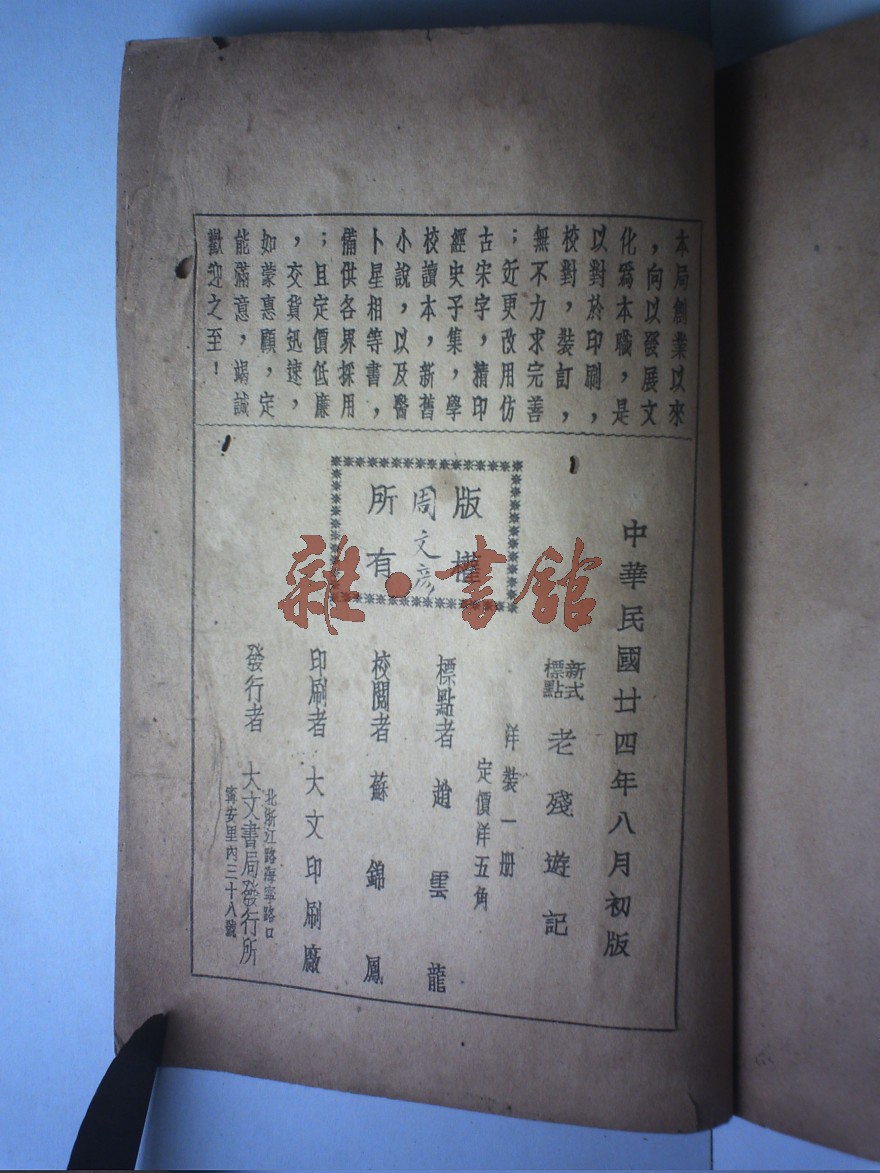 本局創業以來
，向以發展文
化爲本職，是
以對於印刷，
校對，裝訂，
無不力求完善
；近更改用仿
古宋字，精印
經史子集，學
校讀本，新舊
小說，以及醫
卜星相等書，
備供各界採用
；且定價低廉
，交貨迅速，
如蒙惠顧，定
能滿意，竭誠
歡迎之至！
版權
所有
周文彥
中華民國廿四年八月初版
新式
標點
老殘遊記
洋裝一册
定價洋五角
標點者 趙雲龍
校閱者 蘇錦鳳
印刷者 大文印刷廠
發行者 大文書局發行所
北浙江路海寧路口
寗安里內三十八號
雜·書館